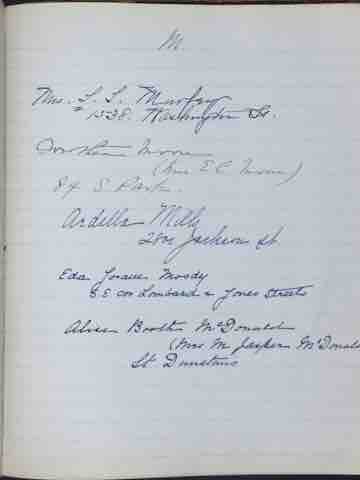 M.
Mrs. S. S. Murfey
1538. Washington St.
Moore
(Mrs E C Moore)
84 S. Park.
Ardella Mills
Jackson St.
Eda Moody
S. E cor Lombard & Jones Streets
Booth McDonald
(Mrs M Jasper McDonald
St Dunstans